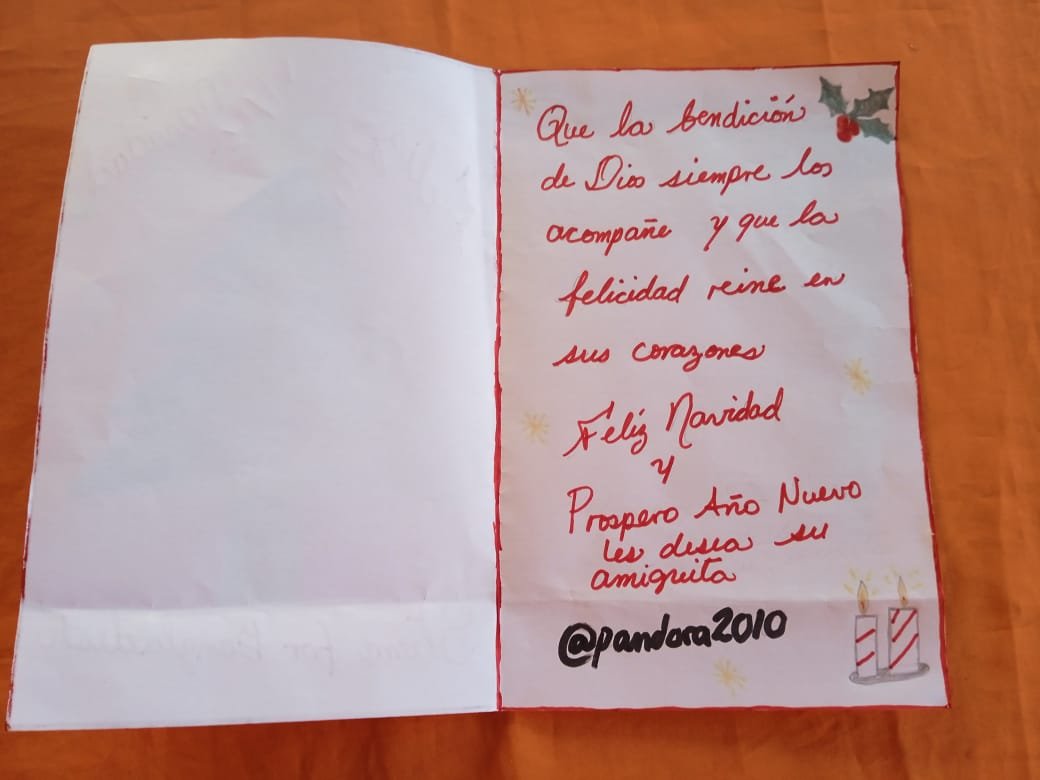 Que la bendición
de Dios siempre los
acompañe y que la
felicidad reine en
sus corazones
Felíz Navidad
y
Prospero Año Nuevo
les desea su
amiguita
@pandora2010